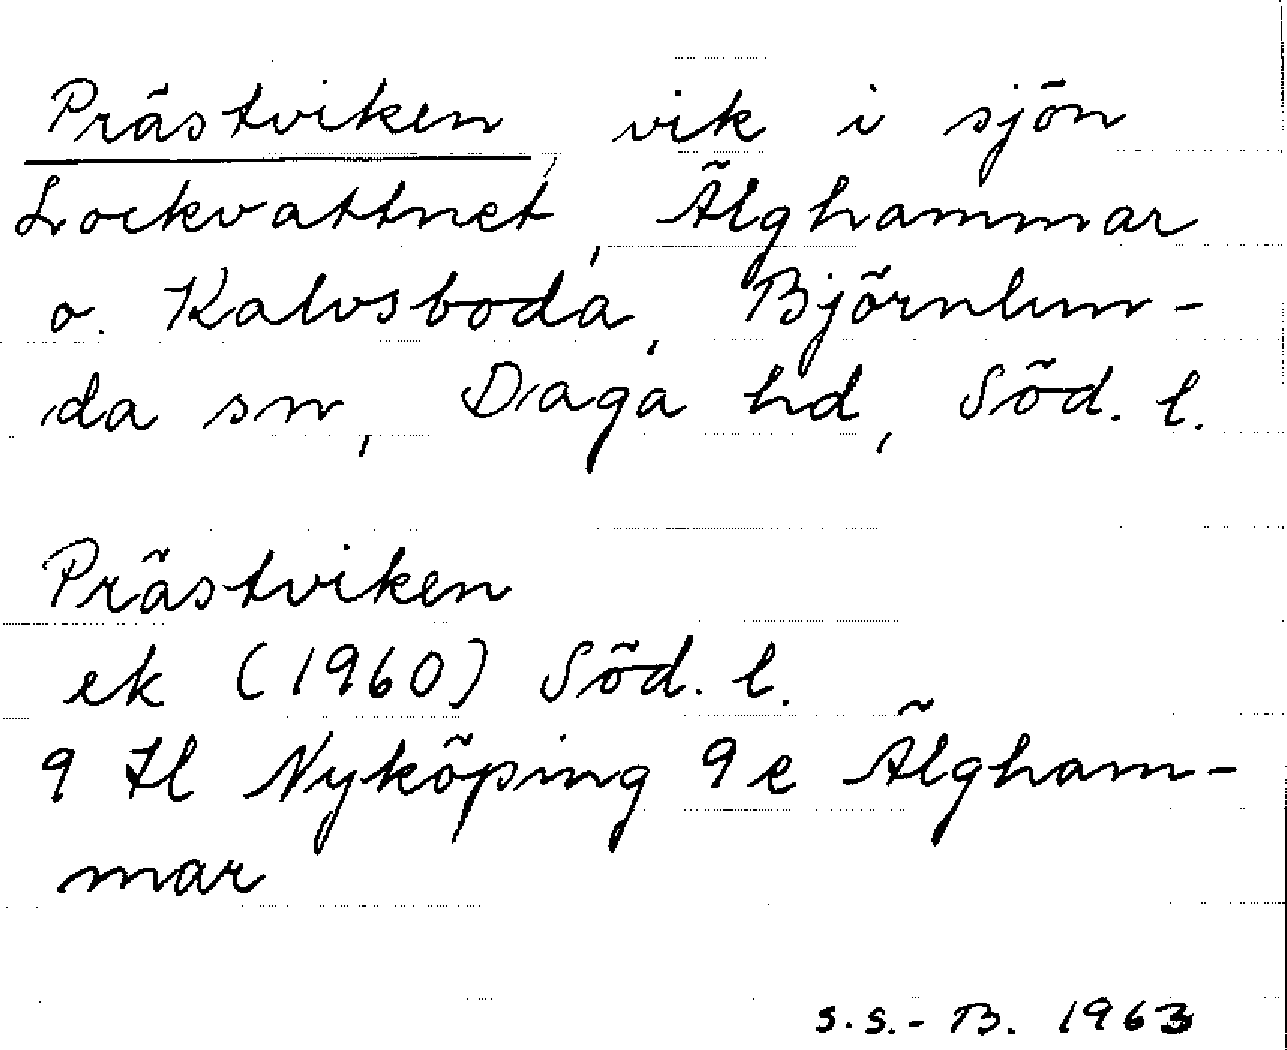 Prästviken, vik i sjön
Lockvattnet, Älghammar
o. Kalvsboda, Björnlun-
da sn, Daga hd, Söd. l.
Prästviken
ek (1960) Söd. l.
9 Hl Nyköping 9e Älgham-
mar
S.S.-B. 1963